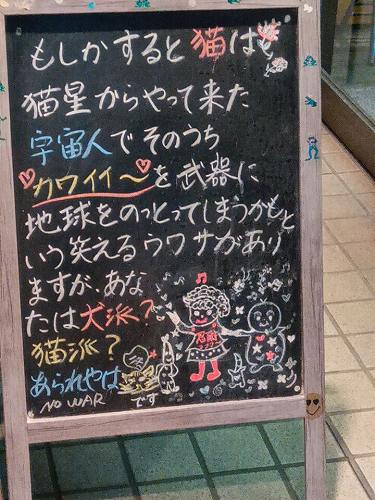 もしかすると猫は
猫星からやって来た
宇宙人でそのうち
カワイイ〜を武器に
地球をのっとってしまうかもと
いう笑えるウワサがあり
ますが、あな
たは犬派？
猫派？
あられやは
です
NO WAR